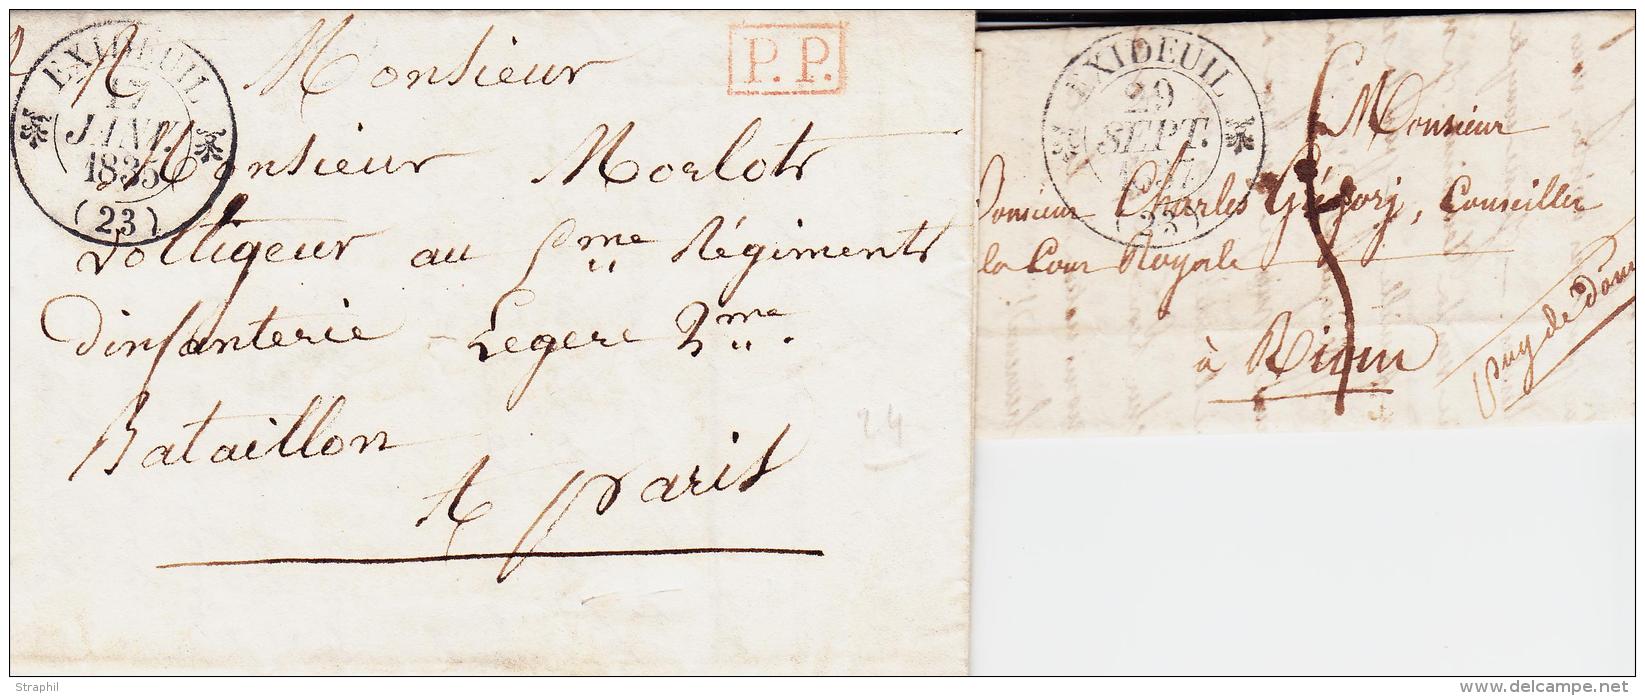 EXIDEUIL
17
JANV.
1835
(23)
P.P.
A Monsieur
Monsieur Morlot
voltigeur au 5me Régiment
dinfanterie Legere 2me.
Bataillon
A paris
24
EXIDEUIL
29
SEPT.
1837
(23)
Monsieur
Monsieur Charles Grégory, Conseiller
la Cour Royale
à Riom
Puy de Dôme
Straphil
www.delcampe.net